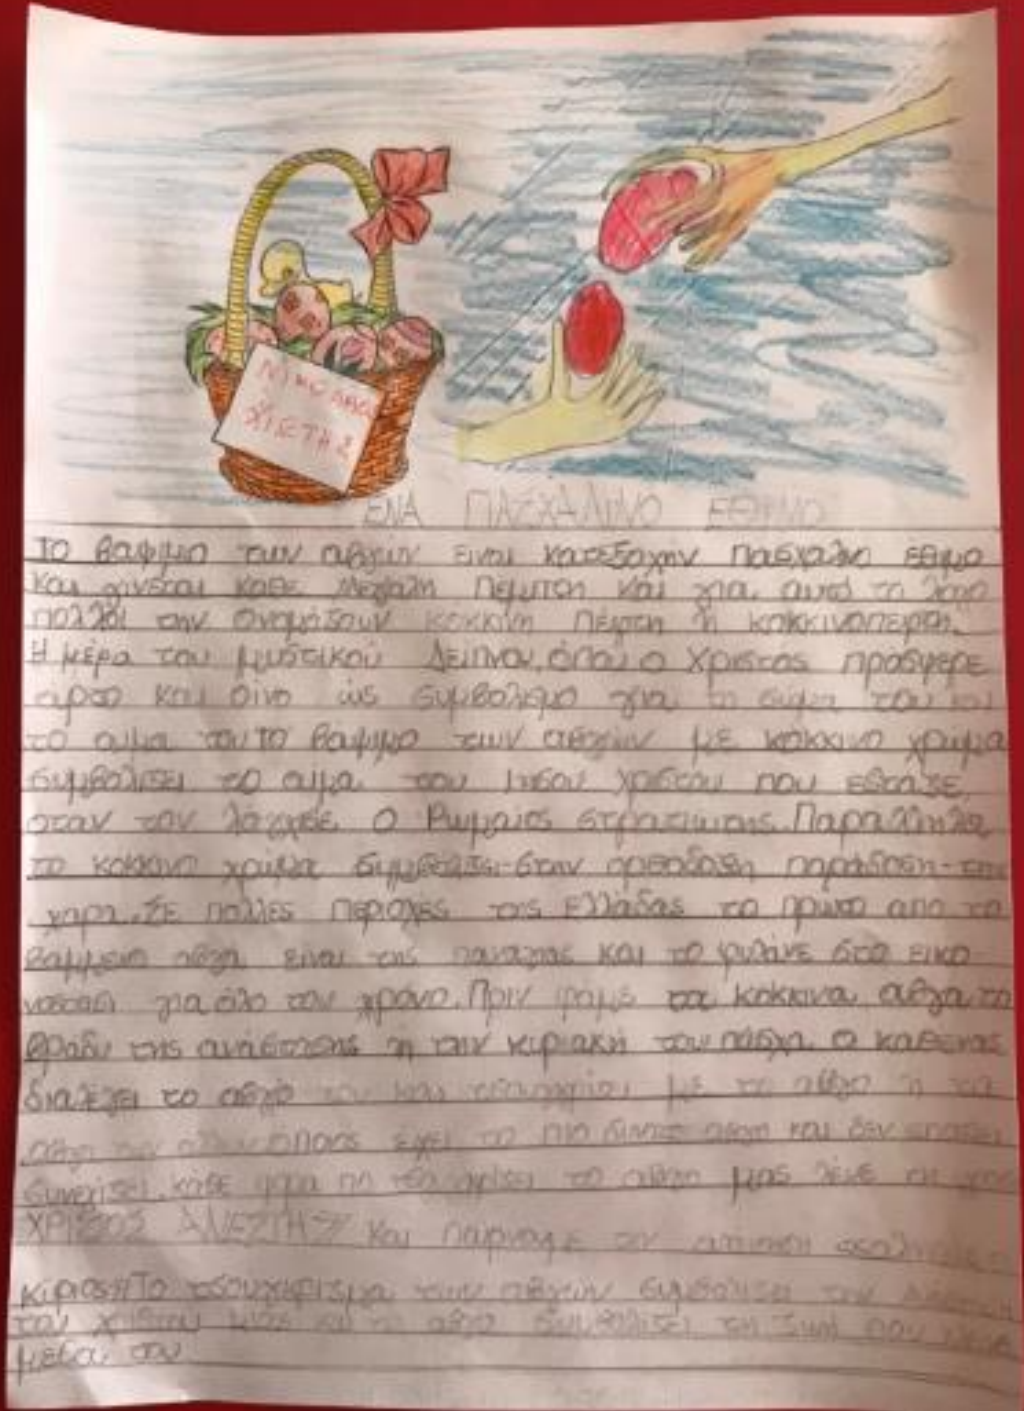 ΝΙΚΟΛΑΣ
ΧΙΕΤΗΣ
ΕΝΑ ΠΑΣΧΑΛΙΝΟ ΕΘΙΜΟ
Το βαψιμο των αβγών ειναι κατεξοχην πασχαλινο εθιμο
και γινεται καθε Μεγαλη Πεμπτη και για αυτό το λογο
πολλοι την ονομάζουν κοκκινη Πέμπτη ή κοκκινοπεφτη.
Η μέρα του μυστικού Δειπνου, όπου ο Χριστός προσφερε
αρτο και οινο ώς συμβολισμο για το σωμα του και
το αιμα του το βαψιμο των αβγών με κοκκινο χρωμα
συμβολιζει το αιμα του Ιησου Χριστου που εσταξε,
οταν τον λόγχισε ο Ρωμαιος στρατιωτης. Παραλληλα
το κοκκινο χρωμα συμβολιζει-στην ορθοδοξη παράδοση-την
χαρα. Σε πολλες περιοχες της Ελλαδας το πρωτο απο τα
βαμμενα αβγα ειναι της παναγιας και το φυλάνε στο εικο
νοστασι για όλο τον χρόνο. Πριν φαμε τα κοκκινα αβγα το
βραδυ της ανάστασης ή την κυριακή του πάσχα ο καθενας
διαλέγει το αβγό του και τσουγκριζει με το αβγο ή τα
αβγα των αλλων οποιος εχει το πιο δυνατο αβγο και δεν σπασει
συνεχιζει. κάθε φορα που τσουγκριζει το αβγο μας λέμε
ΧΡΙΣΤΟΣ ΑΝΕΣΤΗ και παιρνουμε την απαντηση αληθως ο
κυριος!! Το τσουγκρισμα των αβγών συμβολιζει την Ανασταση
του χριστου μιας και το αβγο συμβολιζει τη ζωη που
μεσα του